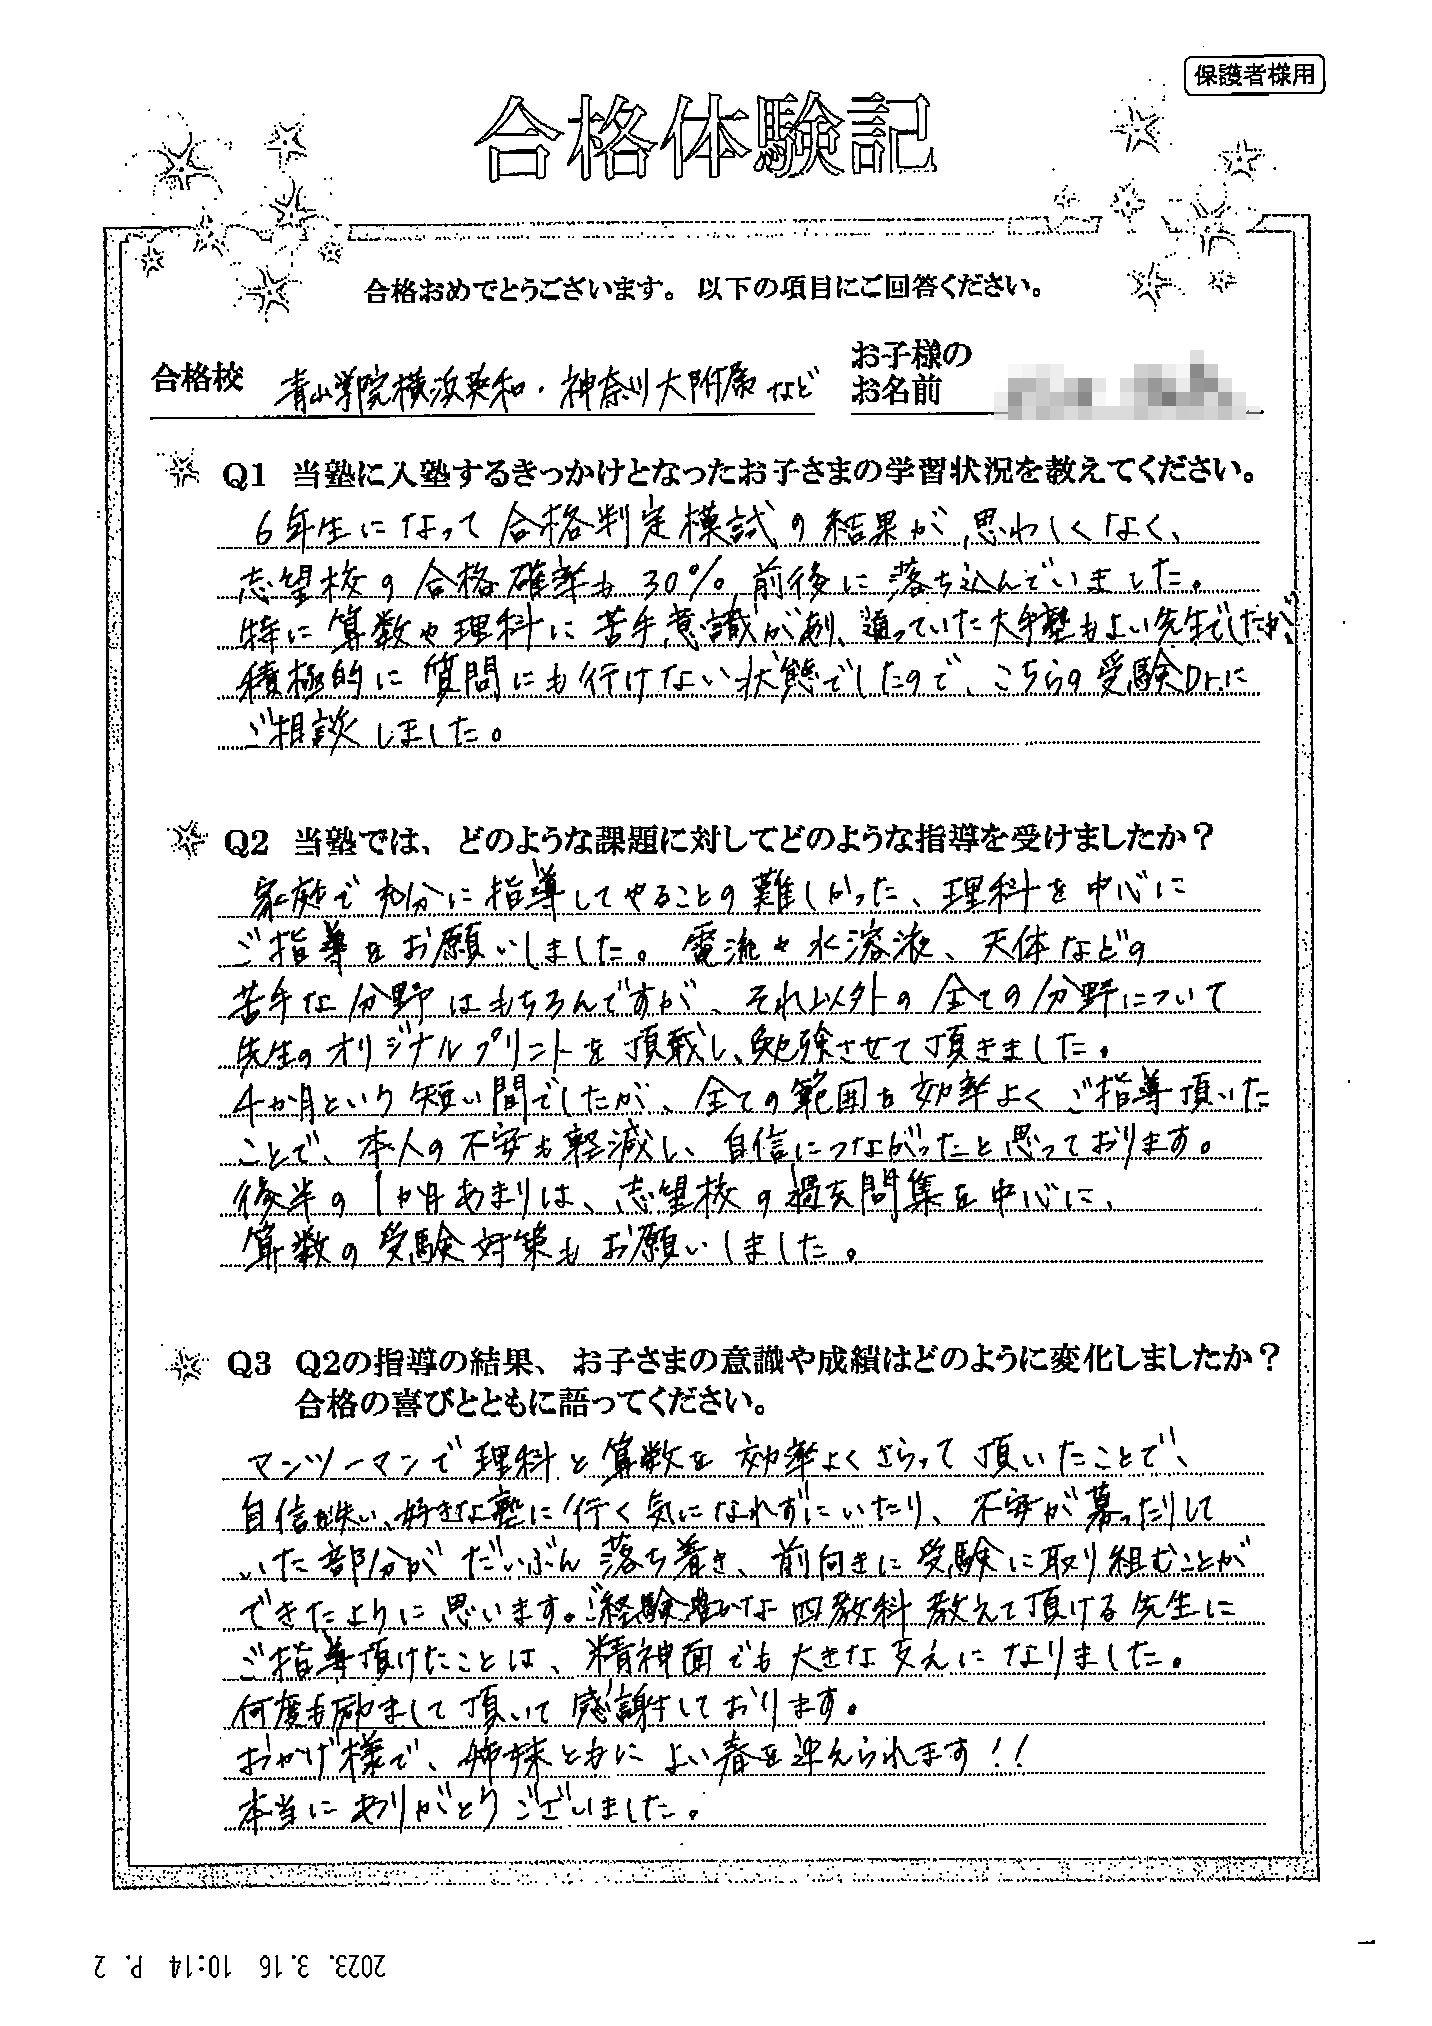 保護者様用
合格体験記
合格おめでとうございます。以下の項目にご回答ください。
合格校 青山学院横浜英和・神奈川大附属など
お子様の
お名前
Q1 当塾に入塾するきっかけとなったお子さまの学習状況を教えてください。
6年生になって合格判定模試の結果が思わしくなく、
志望校の合格確率も30%前後に落ち込んでいました。
特に算数や理科に苦手意識があり、通っていた大手塾もよい先生でしたが、
積極的に質問にも行けない状態でしたので、こちらの受験Dr.に
ご相談しました。
Q2 当塾では、どのような課題に対してどのような指導を受けましたか?
家庭で充分に指導してやることの難しかった、理科を中心に
ご指導をお願いしました。電流や水溶液、天体などの
苦手な分野はもちろんですが、それ以外の全ての分野について
先生のオリジナルプリントを頂戴し、勉強させて頂きました。
4か月という短い間でしたが、全ての範囲を効率よくご指導頂いた
ことで、本人の不安も軽減し、自信につながったと思っております。
後半の1か月あまりは、志望校の過去問集を中心に、
算数の受験対策もお願いしました。
Q3 Q2の指導の結果、お子さまの意識や成績はどのように変化しましたか?
合格の喜びとともに語ってください。
マンツーマンで理科と算数を効率よくさらって頂いたことで、
自信を失い、好きな塾に行く気になれずにいたり、不安が募ったりして
いた部分がだいぶん落ち着き、前向きに受験に取り組むことが
できたように思います。ご経験豊かな四教科教えて頂ける先生に
ご指導頂けたことは、精神面でも大きな支えになりました。
何度も励まして頂いて感謝しております。
おかげ様で、姉妹ともによい春を迎えられます!!
本当にありがとうございました。
2023. 3.16 10:14 P. 2